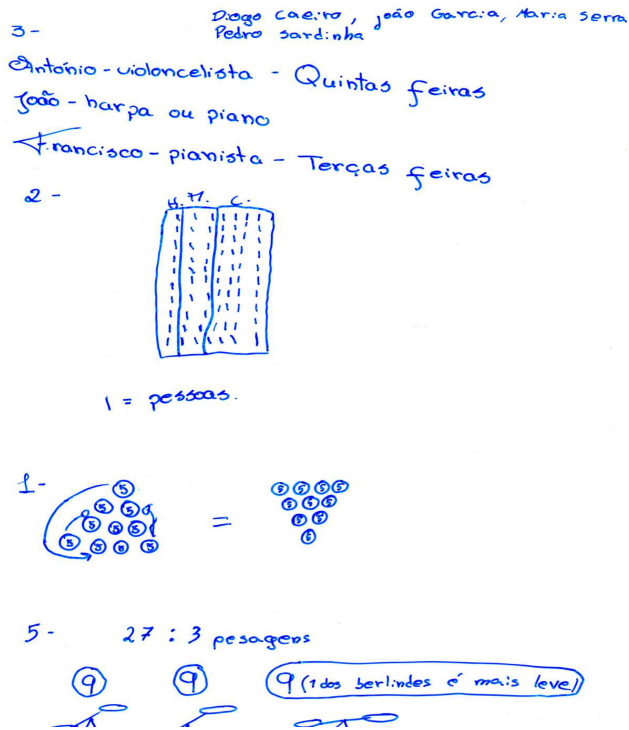 Diogo Caeiro, João Garcia, Maria Serra
3 - Pedro Sardinha
António - violoncelista - Quintas feiras
João - harpa ou piano
Francisco - pianista - Terças feiras
2 -
H. M. C.
1 = pessoas.
1 -
5
5 5
5 5 5
5 5 5 5
=
5 5 5 5
5 5 5
5 5
5
5 - 27 : 3 pesagens
9 9 9 (1 dos berlindes é mais leve)